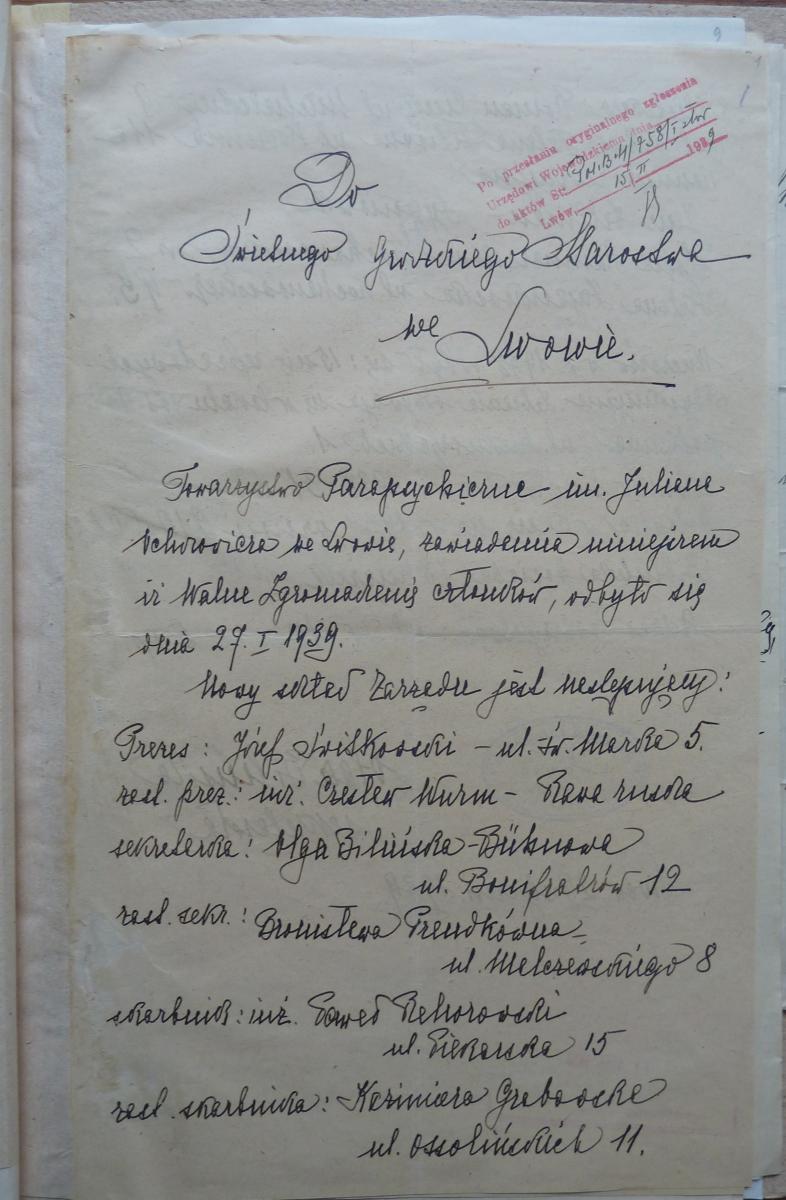 9
1
Po przesłaniu oryginalnego zgłoszenia
Urzędowi Wojewódzkiemu dnia
do aktów St: Pol.B.H/758/I
Lwów, 15/II 1939
Do
Świetnego Grodzkiego Starostwa
we
Lwowie.
Towarzystwo Parapsychiczne im. Juliana
Ochorowicza we Lwowie, zawiadamia niniejszem
iż Walne Zgromadzenie członków, odbyło się
dnia 27. I 1939.
Nowy skład Zarządu jest następujący:
Prezes: Józef Świtkowski – ul. św. Marka 5.
zast. prez.: inż. Czesław Wurm – Rawa ruska
sekretarka: Olga Bilińska-
ul. Bonifratrów 12
zast. sekr.: Bronisława Prendkówna –
ul. Malczewskiego 8
skarbnik: inż.
ul. Piekarska 15
zast. skarbnika: Kazimiera Grabowska
ul. Ossolińskich 11.